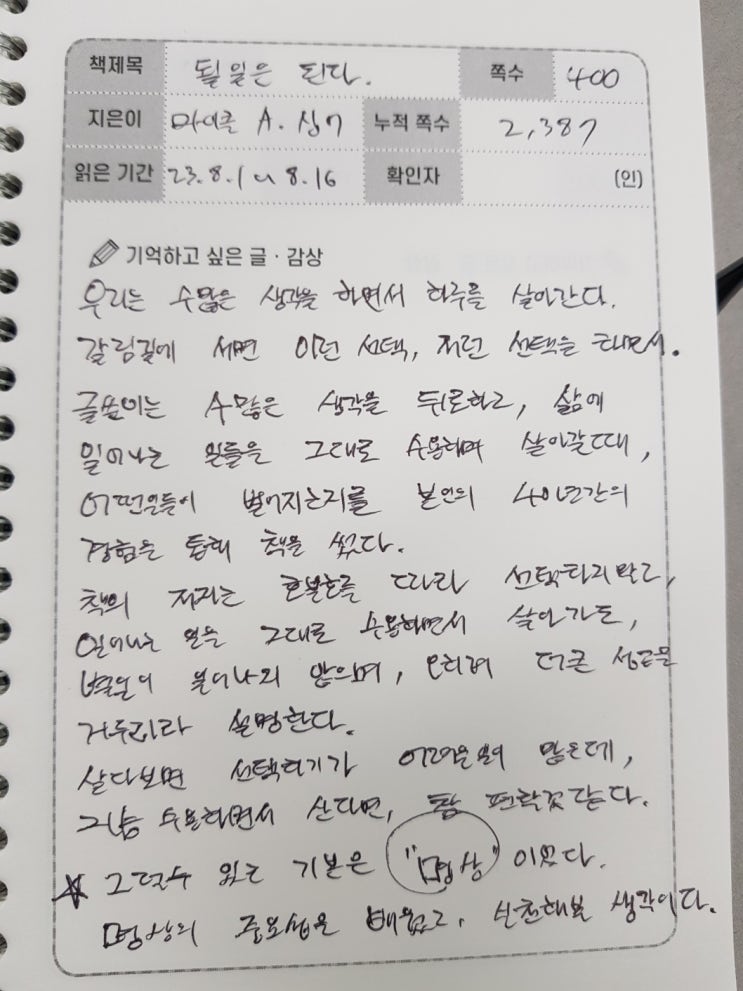 책제목 될일은 된다. 쪽수 400
지은이 마이클 A. 싱어 누적 쪽수 2,387
읽은 기간 23.8.1 ~ 8.16 확인자 (인)
기억하고 싶은 글 · 감상
우리는 수많은 생각을 하면서 하루를 살아간다.
갈림길에 서면 이런 선택, 저런 선택을 하면서.
글쓴이는 수많은 생각을 뒤로하고, 삶에
일어나는 일들을 그대로 수용하며 살아갈때,
어떤일들이 벌어지는지를 본인의 40년간의
경험을 통해 책을 썼다.
책의 저자는 호불호를 따라 선택하지말고,
일어나는 일을 그대로 수용하면서 살아가도,
별일이 일어나지 않으며, 오히려 더큰 성공을
거두리라 설명한다.
살다보면 선택하기가 어려운일이 많은데,
그냥 수용하면서 산다면, 참 편할것 같다.
☆ 그럴수 있는 기본은 "명상" 이었다.
명상의 중요성을 배웠고, 실천해볼 생각이다.